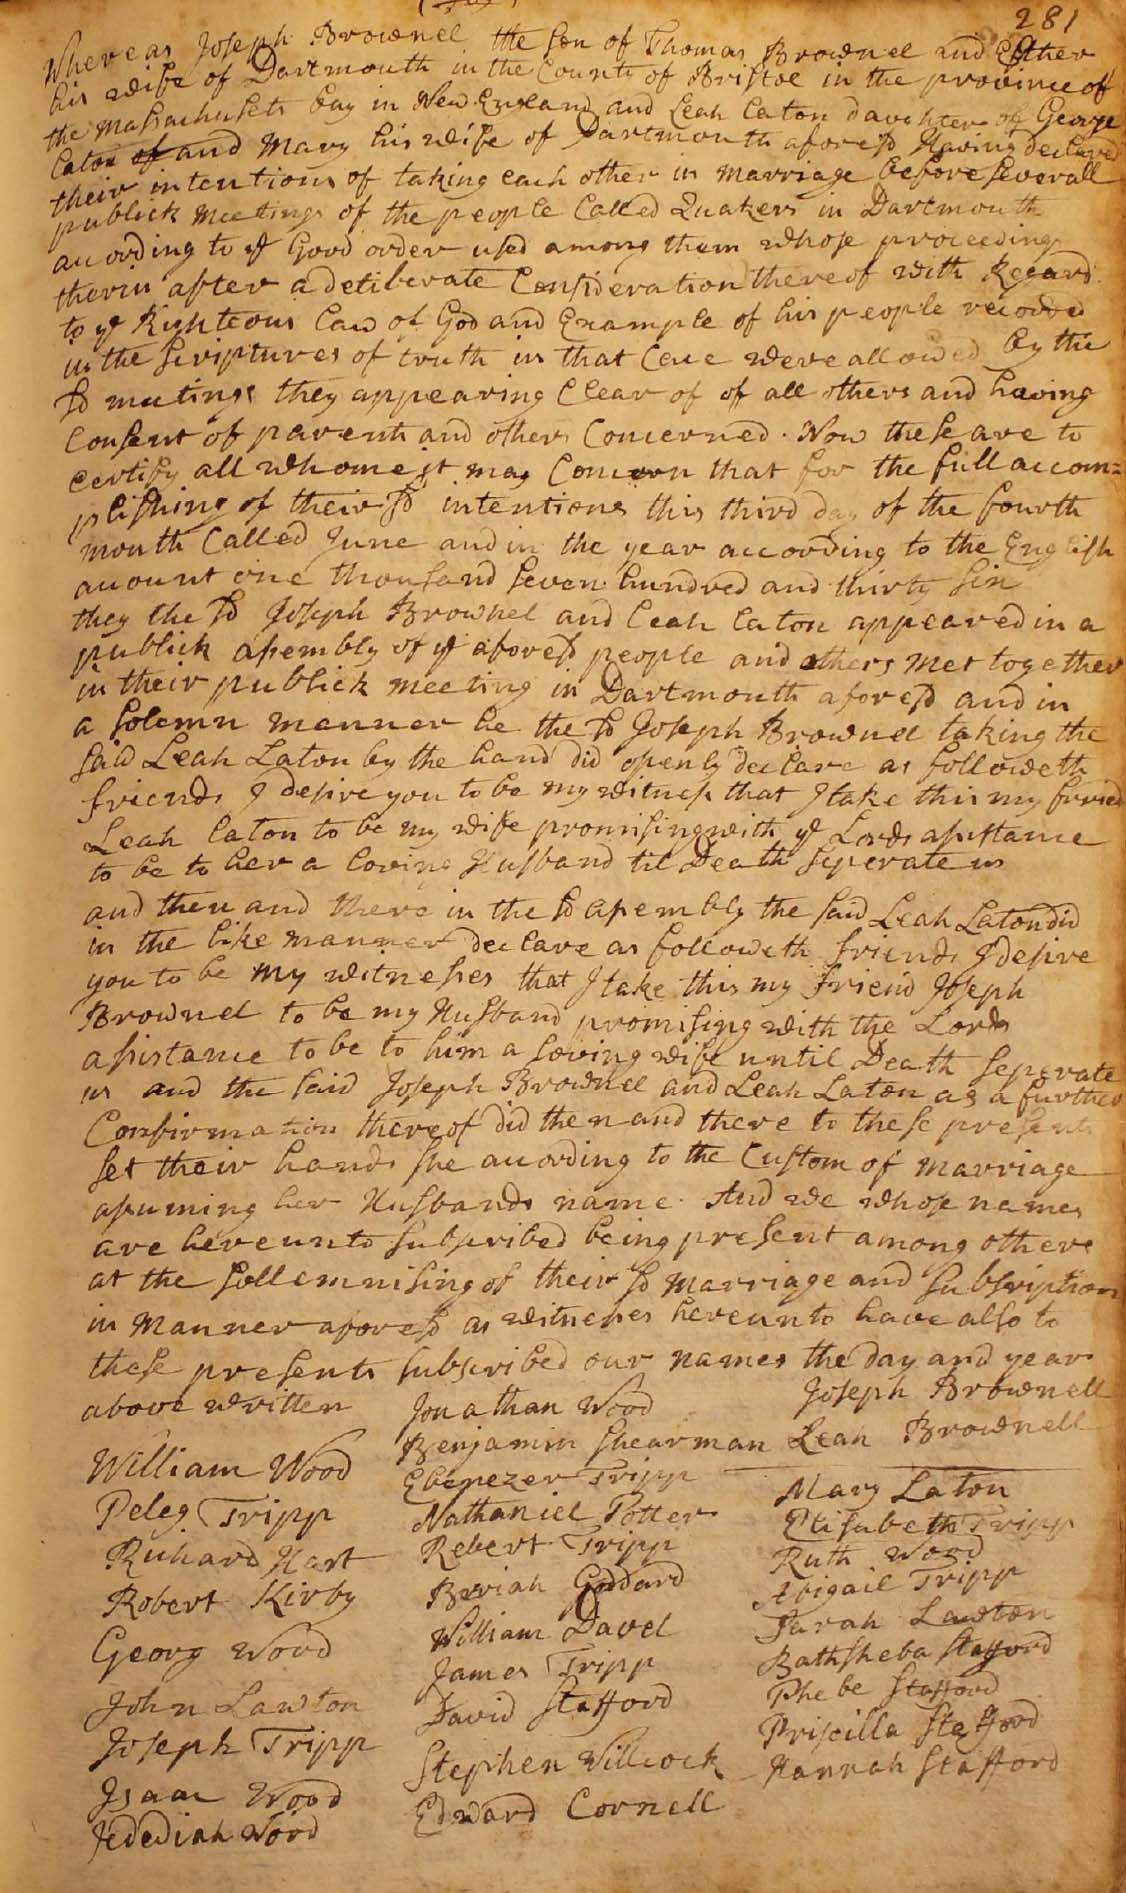 281
Whereas Joseph Brownel the Son of Thomas Brownel and Esther
his wife of Dartmouth in the County of Bristol in the province of
the Massachusets bay in New England and Leah Laton daughter of George
Laton of and Mary his wife of Dartmouth aforesd Having declared
their intentions of taking each other in marriage before severall
publick meetings of the people Called Quakers in Dartmouth
acording to ye Good order used among them whose proceedings
therin after a deliberate Consideration thereof with Regard
to ye Righteous Law of God and Example of his people recorded
in the Scriptures of truth in that Case were allowed by the
sd meetings they appearing Clear of of all others and having
Consent of parents and others Concerned. Now these are to
certify all whome it may Concern that for the full accom=
plishing of their sd intentions this third day of the fourth
month Called June and in the year according to the English
account one thousand seven hundred and thirty six
they the sd Joseph Brownel and Leah Laton appeared in a
publick assembly of ye aforesd people and others met together
in their publick meeting in Dartmouth aforesd and in
a solemn manner he the sd Joseph Brownel taking the
said Leah Laton by the hand did openly declare as followeth
friends I desire you to be my witness that I take this my friend
Leah Laton to be my wife promising with ye Lords assistance
to be to her a loving Husband til Death seperate us
and then and there in the sd assembly the said Leah Laton did
in the like manner declare as followeth friends I desire
you to be my witnesses that I take this my friend Joseph
Brownel to be my Husband promising with the Lords
assistance to be to him a loving wife until Death seperate
us and the said Joseph Brownel and Leah Laton as a further
Confirmation thereof did then and there to these presents
set their hands she acording to the Custom of marriage
assuming her Husbands name. And we whose names
are hereunto subscribed being present among others
at the sollemnising of their sd marriage and subscription
in manner aforesd as witnesses hereunto have also to
these presents subscribed our names the day and year
above written
Joseph Brownell
Leah Brownell
William Wood
Peleg Tripp
Richard Hart
Robert Kirby
Georg Wood
John Lawton
Joseph Tripp
Isaac Wood
Jedediah Wood
Jonathan Wood
Benjamin Shearman
Ebenezer Tripp
Nathaniel Potter
Robert Tripp
Beriah Goddard
William Davel
James Tripp
David Stafford
Stephen Willcock
Edward Cornell
Mary Laton
Elisabeth Tripp
Ruth Wood
Abigail Tripp
Sarah Lawton
Bathsheba Stafford
Phebe Stafford
Priscilla Stafford
Hannah Stafford